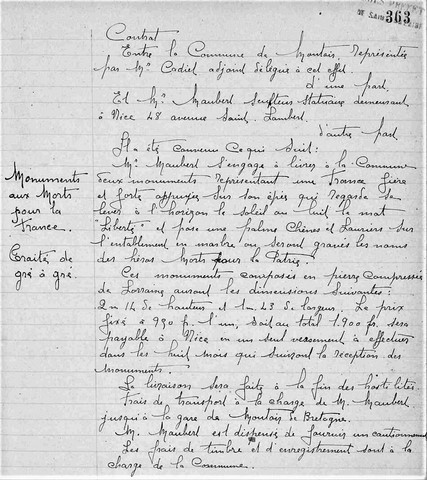 363
Contrat
Entre la Commune de Montoir, Représentée
par Mr Cadiet adjoint délégué à cet effet.
d'une part.
Et Mr Maubert Sculpteur Statuaire demeurant
à Nice 48 avenue Saint Lambert.
d'autre part.
Il a été convenu ce qui suit:
Mr Maubert s'engage à livrer à la Commune
deux monuments représentant une France fière
et forte appuyée sur son épée qui regarde se
lever à l'horizon le soleil au luit le mot
"Liberté" et pose une palme Chênes et Lauriers sur
l'entablement en marbre où seront gravés les noms
des héros Morts pour la Patrie.
Ces monuments composés en pierre compressée
de Lorraine auront les dimensions suivantes:
2m 14 de hauteur et 1m.43 de largeur. Le prix
fixé à 950 f. l'un, soit au total 1.900 frs. sera
payable à Nice en un seul versement à effectuer
dans les huit mois qui suivront la réception des
monuments.
La livraison sera faite à la fin des hostilités
Frais de transport à la charge de M. Maubert
jusqu'à la gare de Montoir de Bretagne.
M. Maubert est dispensé de fournir un cautionnement
Les frais de timbre et d'enregistrement sont à la
charge de la Commune.
Monuments
aux Morts
pour la
France.
Traité de
gré à gré.